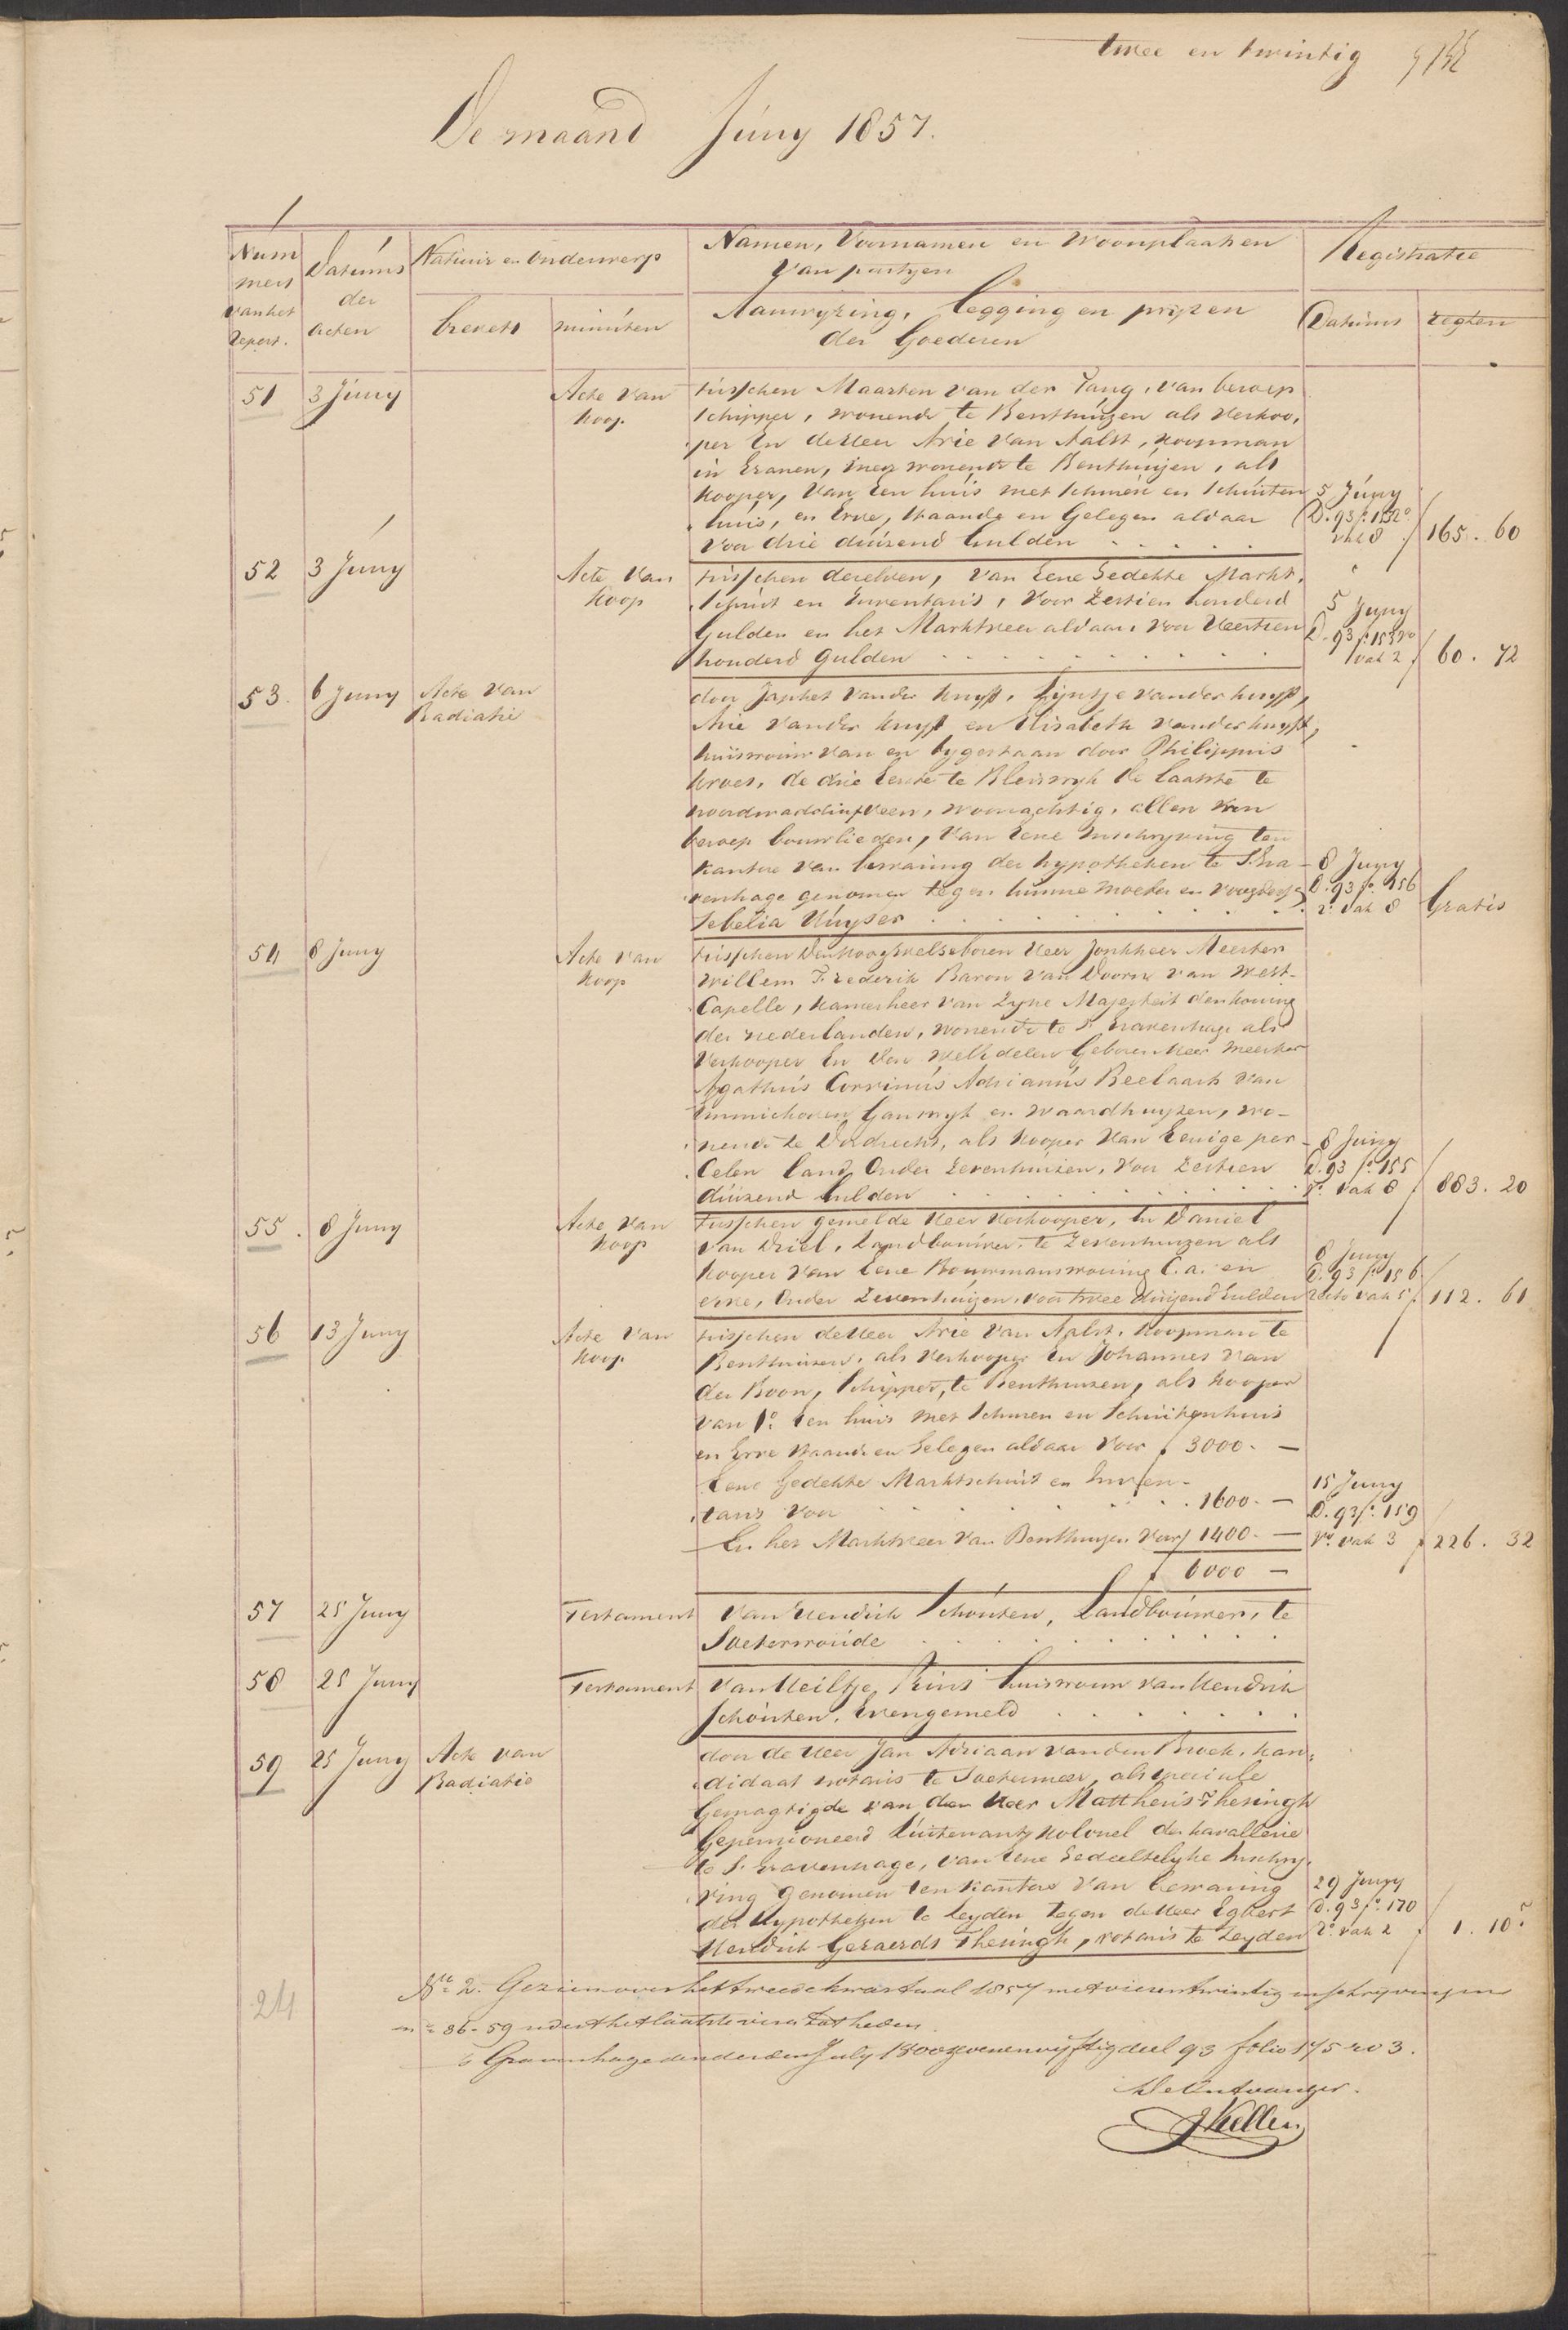 twee en twintig
De maand Juny 1857.
Nummers van het Repert.
Datums der acten
Natuur en Onderwerp
brevets
minuten
Namen, Voornamen en Woonplaatsen
Van partyen
Aanwyzing, legging en pryzen
der Goederen
Registratie
Datums
regten
51 3 Juny Acte van koop
tusschen Maarten van der Tang, van beroep
schipper, wonende te Benthuizen als verkoo-
per En de Heer Arie van Aalst, koopman
in Granen, mede wonende te Benthuizen, als
kooper, van Een huis met schuur en schuiten
huis, en Erve, staande en Gelegen aldaar
voor drie duizend Gulden
5 Juny
D. 93 fo. 153 ro
vak 8 f 165. 60
52 3 Juny Acte van koop
tusschen dezelven, van Eene Gedekte Markt-
schuit en Inventaris, voor Zestien honderd
Gulden en het Marktveer aldaar, voor Veertien
honderd gulden
5 Juny
D. 93 fo. 153 vo
vak 2 f 60. 72
53. 6 Juny Acte van Radiatie
door Japhet vander Knyff, Lyntje vander Knyff,
Arie vander Knyff en Elisabeth vander Knyff,
huisvrouw van en bygestaan door Philippus
Kroes, de drie Eerste te Bleiswyk De laatste te
Noordwaddinxveen, woonachtig, allen van
beroep bouwlieden, van Eene Inschryving ten
kantore van bewaring der hypotheken te S. Gra-
venhage genomen tegen hunne moeder en voogdesse
Sebelia Kuyper
8 Juny
D. 93 fo. 156
ro vak 8 Gratis
54 8 Juny Acte van koop
tusschen Den Hoog Welgeboren Heer Jonkheer Meester
Willem Frederik Baron van Doorn van West-
Capelle, Kamerheer van Zyne Majesteit den koning
der Nederlanden, wonende te s' Gravenhage als
Verkooper En Den WelEdelen Geboren Heer Meester
Agathus Corvinus Adrianus Beelaarts van
Emmichoven Gansoyk en Waardhuyzen, wo-
nende te Dordrecht, als kooper van Eenige per-
celen land Onder Zevenhuizen, voor zestien
duizend Gulden
8 Juny
D. 93 fo. 155
vo. vak 8 f 883. 20
55. 8 Juny Acte van koop
tusschen gemelde Heer Verkooper, En Daniel
van Driel, Landbouwer, te Zevenhuizen als
kooper van Eene Bouwmanswoning C. a. en
erve, Onder Zevenhuizen, voor twee duizend Gulden
8 Juny
D. 93 fo. 156
recto vak 5 f 112. 61
56 13 Juny Acte van koop
tusschen de Heer Arie van Aalst, koopman te
Benthuizen, als Verkooper En Johannes van
der Boon, schipper, te Benthuizen, als kooper
van 1o. Een huis met schuren en schuitenhuis
en Erve staande en Gelegen aldaar voor f 3000. —
Eene Gedekte Marktschuit en Inven-
taris voor 1600. —
En het Marktveer van Benthuizen voor f 1400. —
f 6000 —
15 Juny
D. 93 fo. 159
vo. vak 3 f 226. 32
57 25 Juny Testament
van Hendrik Schouten, Landbouwer, te
Soeterwoude
58 25 Juny Testament
van Neeltje Kins huisvrouw van Hendrik
Schouten, Evengemeld
59 25 Juny Acte van Radiatie
door de Heer Jan Adriaan van den Broek, kan-
didaat notaris te Soetermeer, als speciale
Gemagtigde van den Heer Mattheus Thesingh
Gepensioneerd Luitenant Kolonel der kavallerie
te S. Gravenhage, van Eene Gedeeltelyke Inschry-
ving genomen ten kantore van bewaring
der Hypotheken te Leyden tegen de Heer Egbert
Hendrik Geraerds Thesingh, notaris te Leyden
29 Juny
D. 93 fo. 170
ro. vak 2 f 1. 10 5
24
No. 2. Gezien over het tweede kwartaal 1857 met vierentwintig inschryvingen
no 36-59 sedert het laatste visa tot heden
's Gravenhage den derden July 1800 zevenenvyftig deel 93 folio 175 ro 3.
De Ontvanger.
JKellen